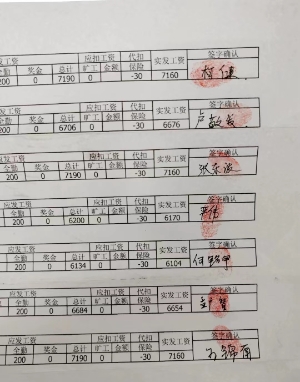 实发工资 应扣工资 代扣 实发工资 签字确认
全勤 奖金 总计 旷工 金额 保险
200 0 7190 0 -30 7160
应发工资 应扣工资 代扣 实发工资 签字确认
全勤 奖金 总计 旷工 金额 保险
200 0 6706 0 -30 6676
应发工资 应扣工资 代扣 实发工资 签字确认
全勤 奖金 总计 旷工 金额 保险
200 0 7190 0 -30 7160
应发工资 应扣工资 代扣 实发工资 签字确认
全勤 奖金 总计 旷工 金额 保险
200 0 6200 0 -30 6170
应发工资 应扣工资 代扣 实发工资 签字确认
全勤 奖金 总计 旷工 金额 保险
200 0 6134 0 -30 6104
应发工资 应扣工资 代扣 实发工资 签字确认
全勤 奖金 总计 旷工 金额 保险
200 0 6684 0 -30 6654
应发工资 应扣工资 代扣 实发工资 签字确认
全勤 奖金 总计 旷工 金额 保险
200 0 7190 0 -30 7160